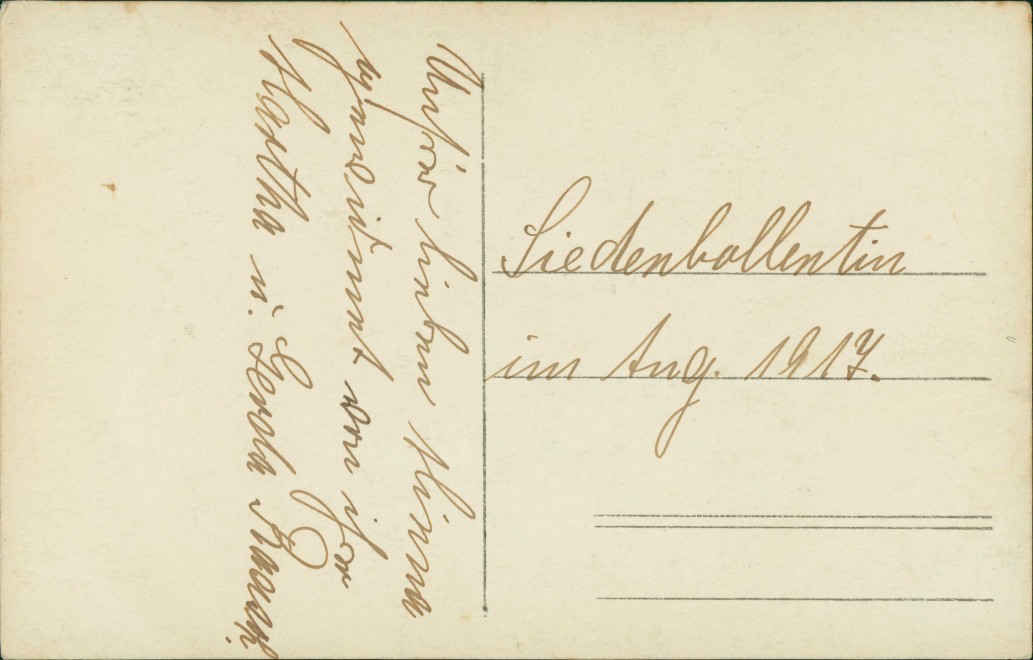 Unserer lieben Minna
gewidmet von ihr
Hertha u. Gerda
Siedenbollentin
im Aug. 1917.